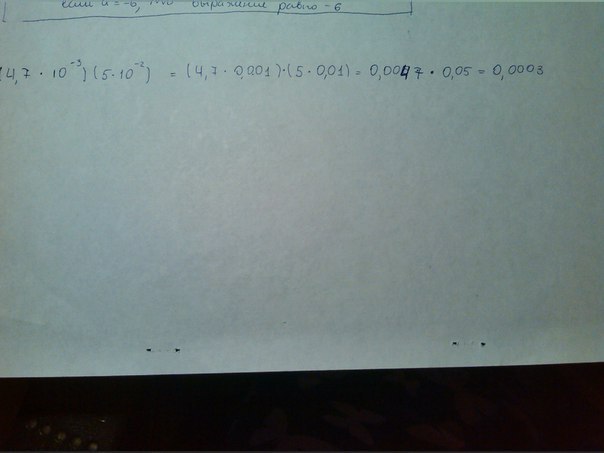 если a = -6, то выражение равно -6
(4,7 · 10⁻³)(5·10⁻²) = (4,7 · 0,001)·(5 · 0,01) = 0,0047 · 0,05 = 0,0003